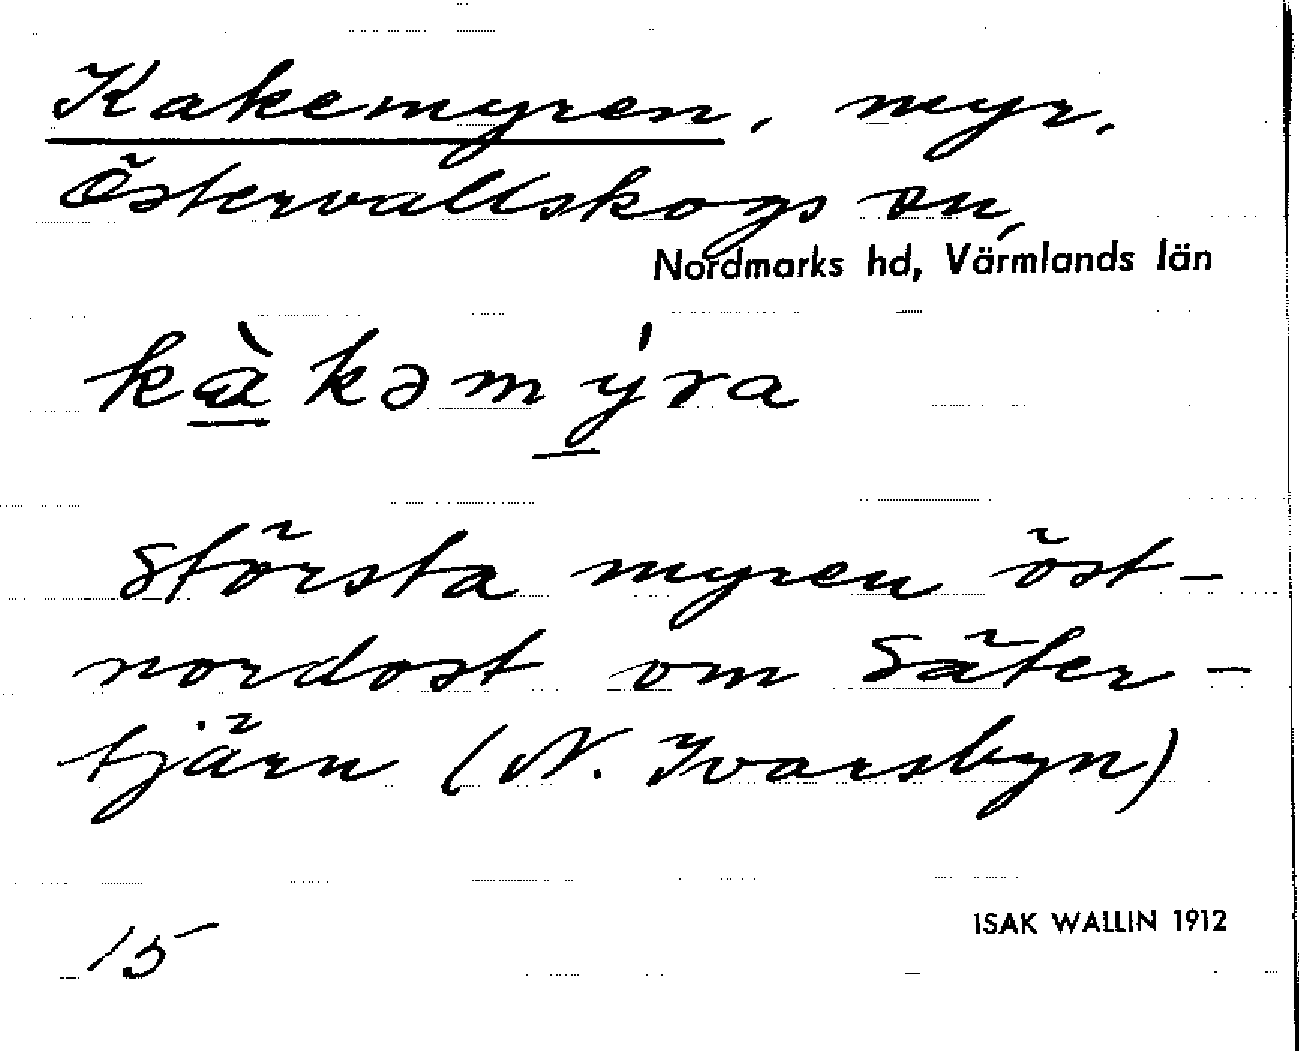 Kakemyren, myr,
Östervallskogs sn,
Nordmarks hd, Värmlands län
kàkəmýra
Största myren öst-
nordost om Säter-
tjärn (N. Ivarsbyn)
15
ISAK WALLIN 1912